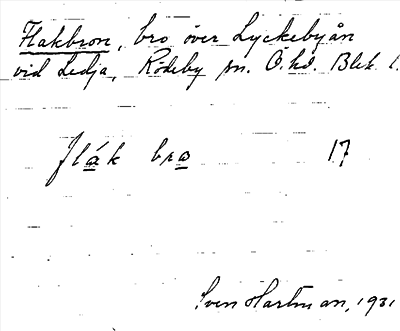 Flakbron, bro över Lyckebyån
vid Ledja, Rödeby sn. Ö.hd. Blek. l.
flák bro 17
Sven Hartman, 1931